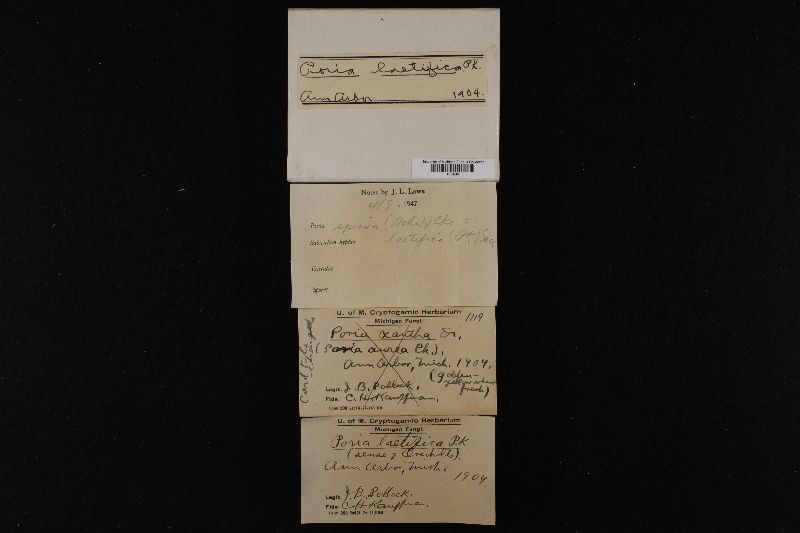 Poria laetifica Pk.
Ann Arbor 1904.
University of Michigan Fungus Collection
Notes by J. L. Lowe
4/8, 1947
Poria spissa (Schw.) Cke =
laetifica (Pk) Sacc
Subiculum hyphae
Cystidia
Spores
U. of M. Cryptogamic Herbarium
Michigan Fungi. 1119
Poria xantha Fr.
(Poria aurea Pk.).
Ann Arbor, Mich. 1904.
(golden-
yellow when
fresh)
Legit. J. B. Pollock.
Fide. C. H. Kauffman.
U. of M. Cryptogamic Herbarium
Michigan Fungi.
Poria laetifica Pk
(sense of Overholts).
Ann Arbor, Mich.
1904.
Legit. J. B. Pollock.
Fide. C. H. Kauffman.